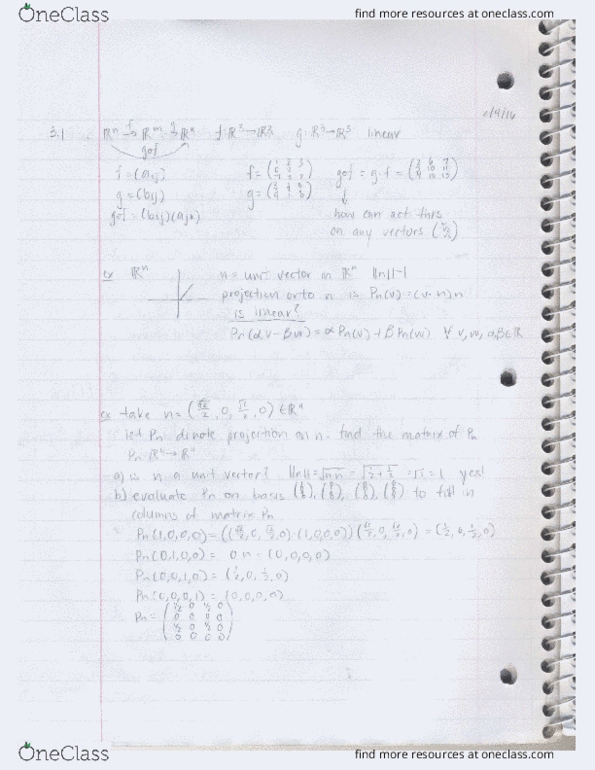 OneClass
find more resources at oneclass.com
3.1 ℝⁿ →f ℝᵐ →g ℝ f:ℝ² → g:ℝ³→ℝ³ linear
gof
f=(aij) f= gof = g·f =
g=(bij) g=
gof=(bij)(ajk) how can act this
on any vectors
ex ℝⁿ n = unit vector on ℝⁿ ||n||=1
projection onto n is Pn(v)=(v·n)n
is linear?
Pn(αv-βw)=αPn(v)+βPn(w) ∀ v,w, α,β∈ℝ
ex take n=(√2/2, 0, √2/2, 0)∈ℝ⁴
let Pn denote projection on n. find the matrix of Pn
Pn ℝ⁴→ℝ⁴
a) is n a unit vector? ||n||=√n·n = √1/2+1/2 =√1=1 yes!
b) evaluate Pn on basis to fill in
columns of matrix Pn
Pn(1,0,0,0)=((√2/2,0,√2/2,0)·(1,0,0,0))(√2/2,0,√2/2,0)=(1/2,0,1/2,0)
Pn(0,1,0,0)= 0·n=(0,0,0,0)
Pn(0,0,1,0)=(1/2,0,1/2,0)
Pn(0,0,0,1)=(0,0,0,0)
Pn= (1/2 0 1/2 0
0 0 0 0
1/2 0 1/2 0
0 0 0 0)
OneClass
find more resources at oneclass.com